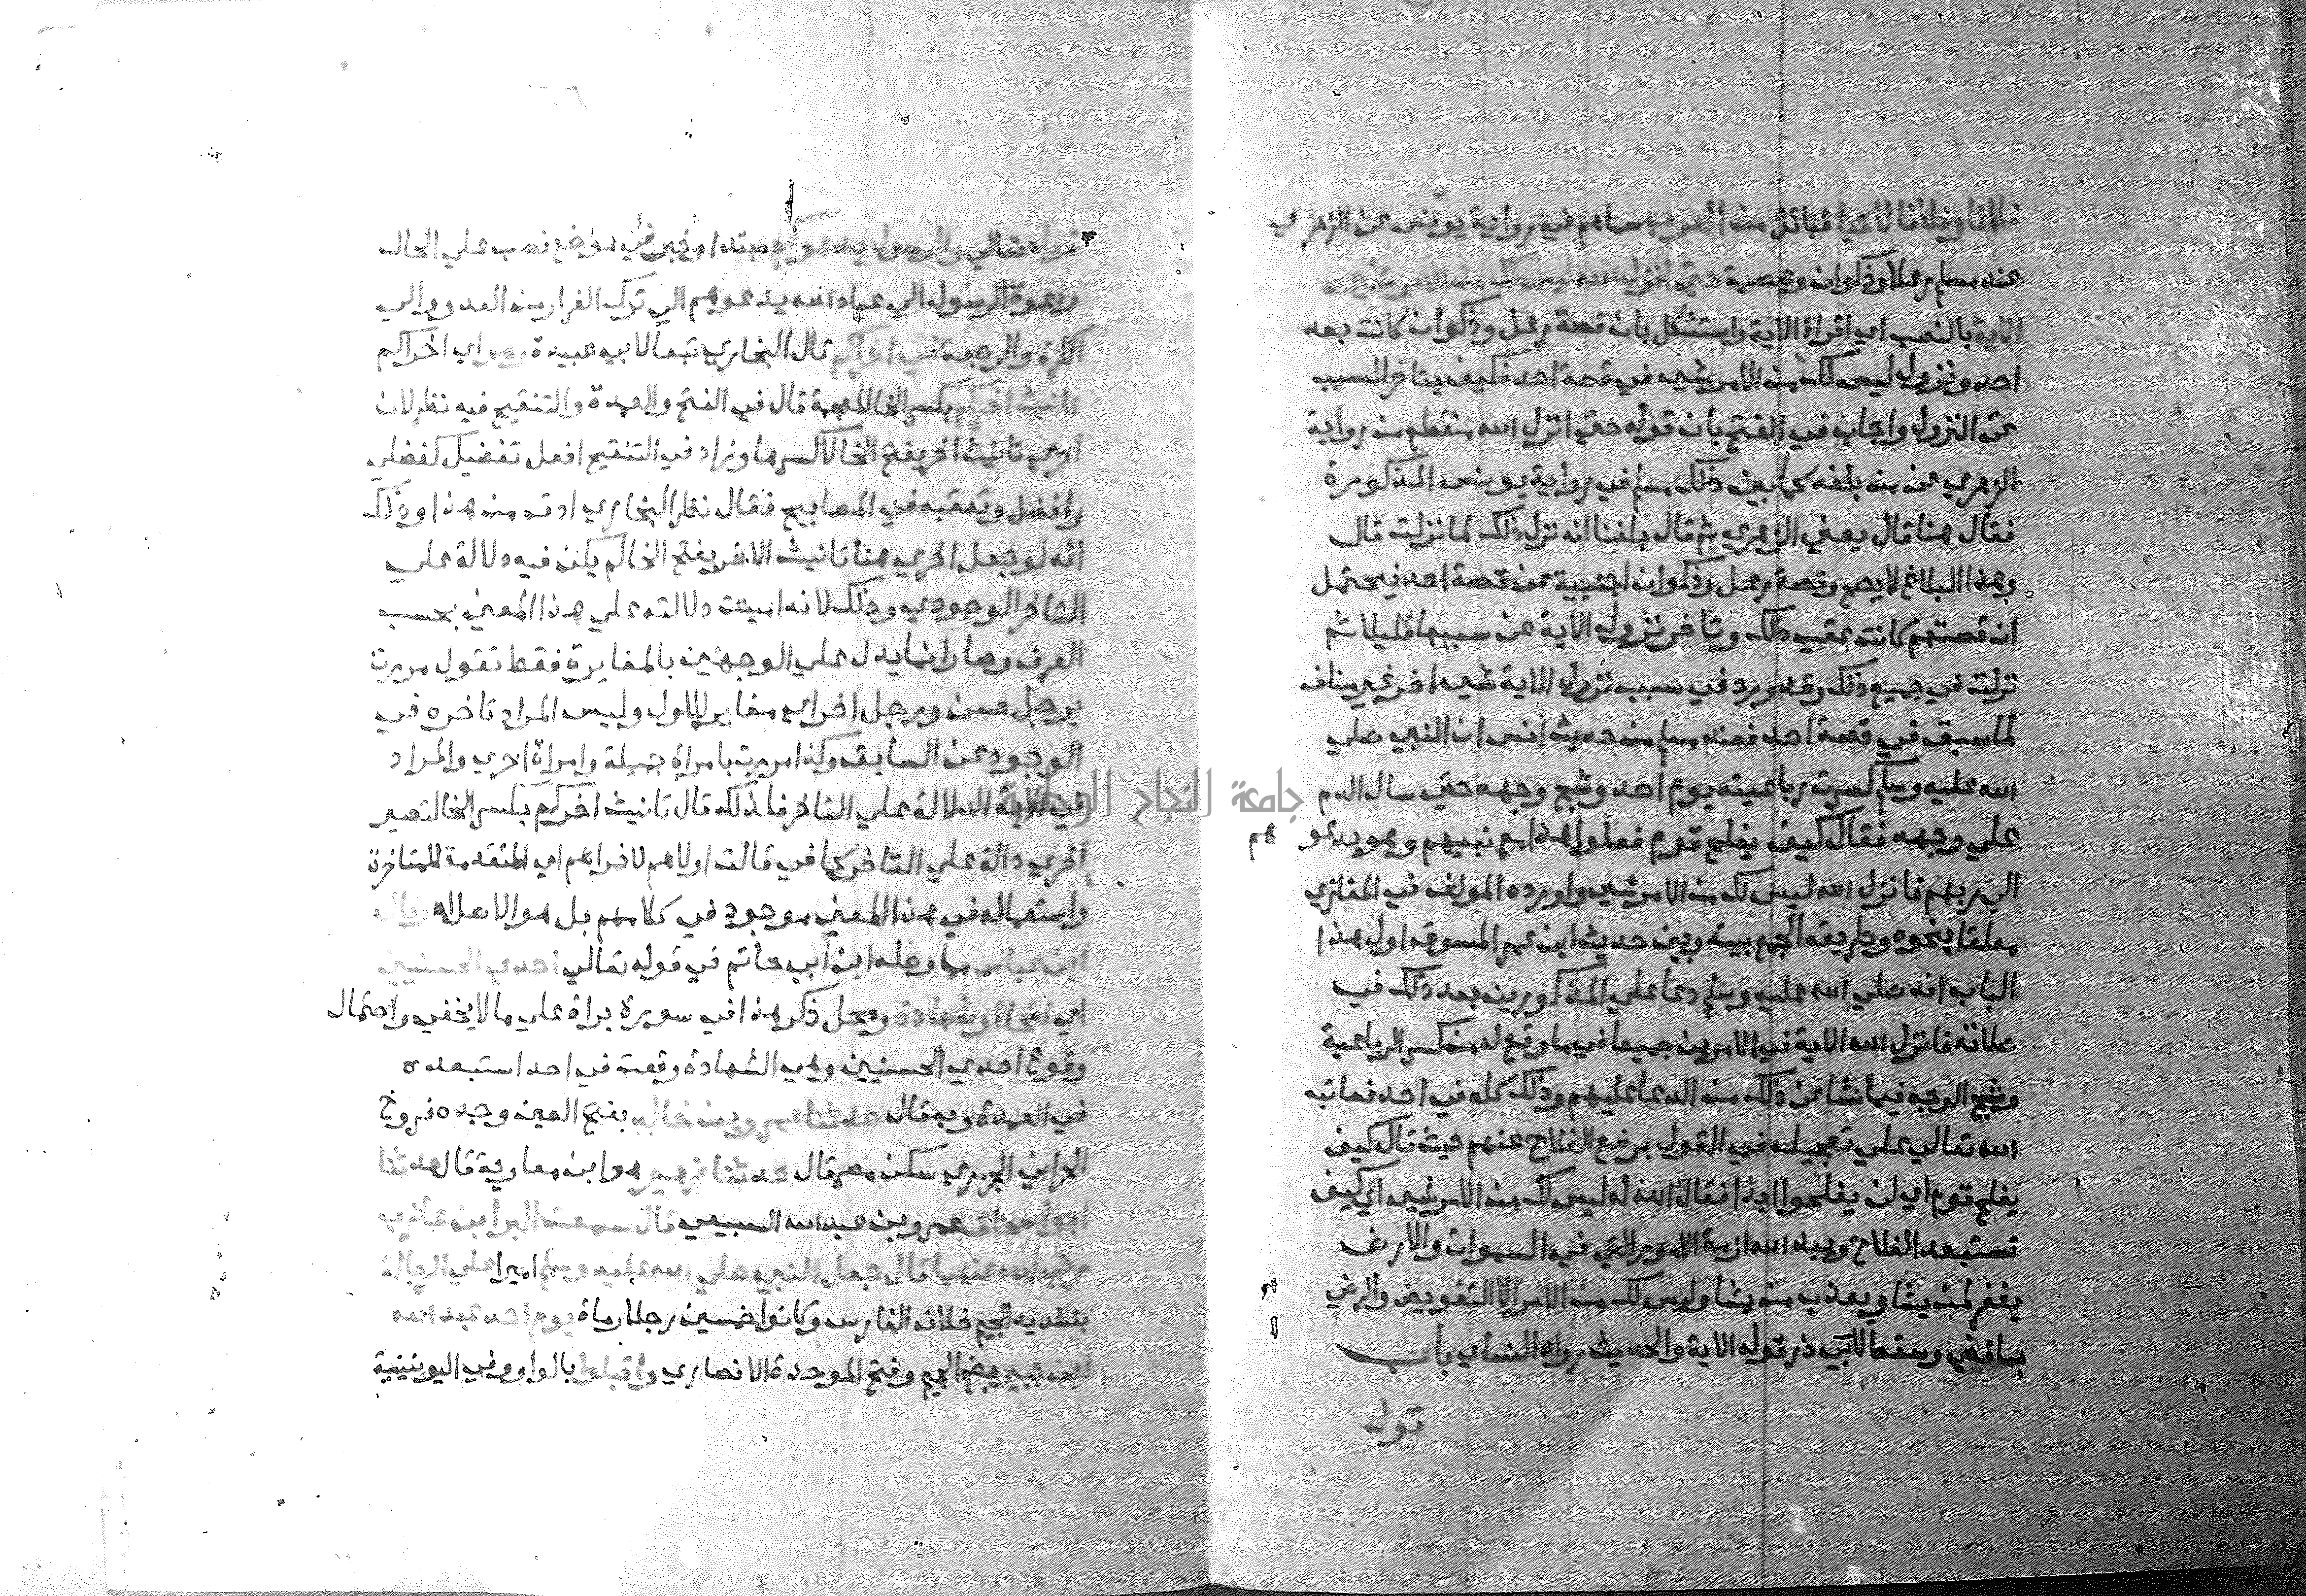 فلانا وفلانا لاحيا قبائل من العرب سماهم في رواية يونس عن الزهري
عند مسلم رعلا وذكوان وعصية حتي انزل الله ليس لك من الامر شي
الاية بالنصب اي اقراة الاية واستشكل بان قصة رعل وذكوان كانت بعد
احد ونزول ليس لك من الامر شي في قصة احد فكيف يتاخر السبب
عن النزول واجاب في الفتح بان قوله حتي انزل الله منقطع من رواية
الزهري عن من بلغه كما بين ذلك مسلم في رواية يونس المذكورة
فقال هنا قال يعني الزهري ثم قال بلغنا انه نزل ذلك لما نزلت قال
وهذا البلاغ لا يصح وقصة رعل وذكوان اجنبية عن قصة احد فيحتمل
ان قصتهم كانت عقب ذلك وتاخر نزول الاية عن سببها قليلا ثم
نزلت في جميع ذلك وقد ورد في سبب نزول الاية شي اخر غير مناف
لما سبق في قصة احد فعند مسلم من حديث انس ان النبي صلي
الله عليه وسلم كسرت رباعيته يوم احد وشج وجهه حتي سال الدم
علي وجهه فقال كيف يفلح قوم فعلوا هذا مع نبيهم وهو يدعوهم
الي ربهم فانزل الله ليس لك من الامر شي واورده المولف في المغازي
معلقا بنحوه وطريق الجمع بينه وبين حديث ابن عمر المسوق اول هذا
الباب انه صلي الله عليه وسلم دعا علي المذكورين بعد ذلك في
صلاته فانزل الله الاية في الامرين جميعا في ما وقع له من كسر الرباعية
وشج الوجه فيما نشا عن ذلك من الدعا عليهم وذلك كله في احد فعاتبه
الله تعالي علي تعجيله في القول برفع الفلاح عنهم حيث قال كيف
يفلح قوم اي لن يفلحوا ابدا فقال الله له ليس لك من الامر شي اي كيف
تستبعد الفلاح وبيد الله ازمة الامور التي في السموات والارض
يغفر لمن يشا ويعذب من يشا وليس لك من الامر الا التفويض والرضي
بما قضي وسقط لابي ذر قوله الاية والحديث رواه النساي باب
قوله
قوله تعالي والرسول يدعوكم مبتدا وخبر في مواضع نصب علي الحال
ودعوة الرسول الي عباد الله يدعوهم الي ترك الفرار من العدو والي
الكرة والرجعة في اخراكم قال البخاري تبعا لابي عبيدة وهو اي اخراكم
تانيث اخركم بكسر الخا المعجمة قال في الفتح والعمدة والتنقيح فيه نظر لان
اخري تانيث اخر بفتح الخا لا كسرها وزاد في التنقيح افعل تفضيل كفضلي
وافضل وتعقبه في المصابيح فقال نظر البخاري ادق من هذا وذلك
انه لو جعل اخري هنا تانيث الاخر بفتح الخا لم يكن فيه دلالة علي
التاخر الوجودي وذلك لانه اميتت دلالته علي هذا المعني بحسب
العرف وصار انما يدل علي الوجهين بالمغايرة فقط تقول مررت
برجل حسن وبرجل اخر اي مغاير للاول وليس المراد تاخره في
الوجود عن السابق وكذا مررت بامراة جميلة وامراة اخري والمراد
في الاية الدلالة علي التاخر فلذلك قال تانيث اخركم بكسر الخا لتصير
اخري دالة علي التاخر كما في قالت اولاهم لاخراهم اي المتقدمة للمتاخرة
واستعماله في هذا المعني موجود في كلامهم بل هو الاصل اه وقال
ابن عباس مما وصله ابن ابي حاتم في قوله تعالي احدي الحسنيين
اي فتحا او شهادة ومحل ذكر هذا في سورة براة علي ما لا يخفي واحتمال
وقوع احدي الحسنيين وهي الشهادة وقعت في احد استبعده
في العمدة وبه قال حدثنا عمرو بن خالد بفتح العين وجده فروخ
الحراني الجزري سكن مصر قال حدثنا زهير هو ابن معاوية قال حدثنا
ابو اسحاق عمرو بن عبد الله السبيعي قال سمعت البرا بن عازب
رضي الله عنهما قال جعل النبي صلي الله عليه وسلم اميرا علي الرجالة
بتشديد الجيم خلاف الفارس وكانوا خمسين رجلا رماة يوم احد عبد الله
ابن جبير بضم الجيم وفتح الموحدة الانصاري واقبلوا بالواو وفي اليونينية
جامعة النجاح الوطنية